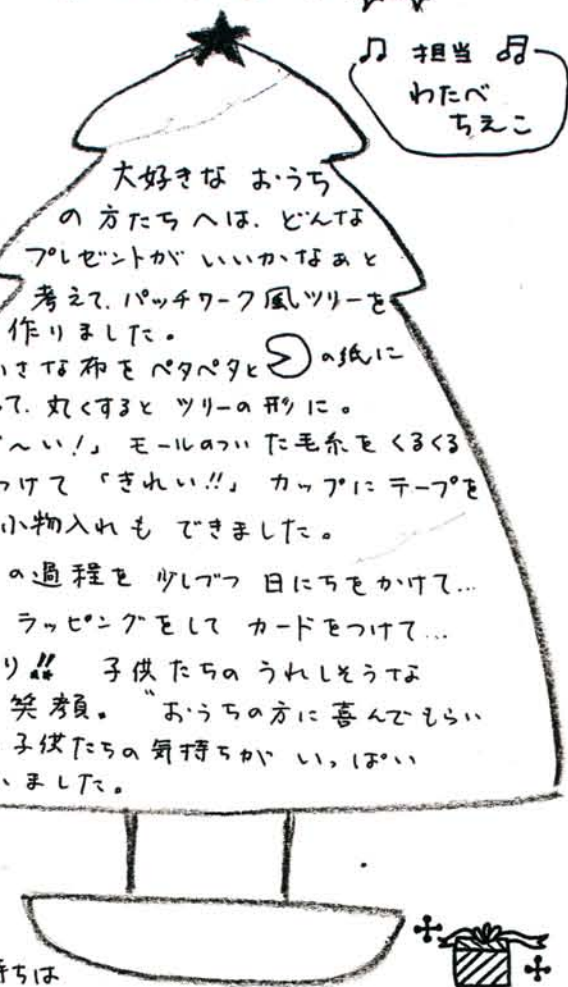 ♫ 担当 ♫
わたべ
ちえこ
大好きな おうち
の方たちへは、どんな
プレゼントが いいかなぁと
考えて、パッチワーク風ツリーを
作りました。
いさな布を ペタペタと の紙に
って、丸くすると ツリーの形に。
〜い!」 モールのついた毛糸を くるくる
つけて 「きれい!!」 カップに テープを
小物入れも できました。
の過程を 少しづつ 日にちをかけて…
ラッピングをして カードをつけて…
り!! 子供たちの うれしそうな
笑顔。 〝おうちの方に喜んでもらい
子供たちの気持ちが いっぱい
いました。
持ちは